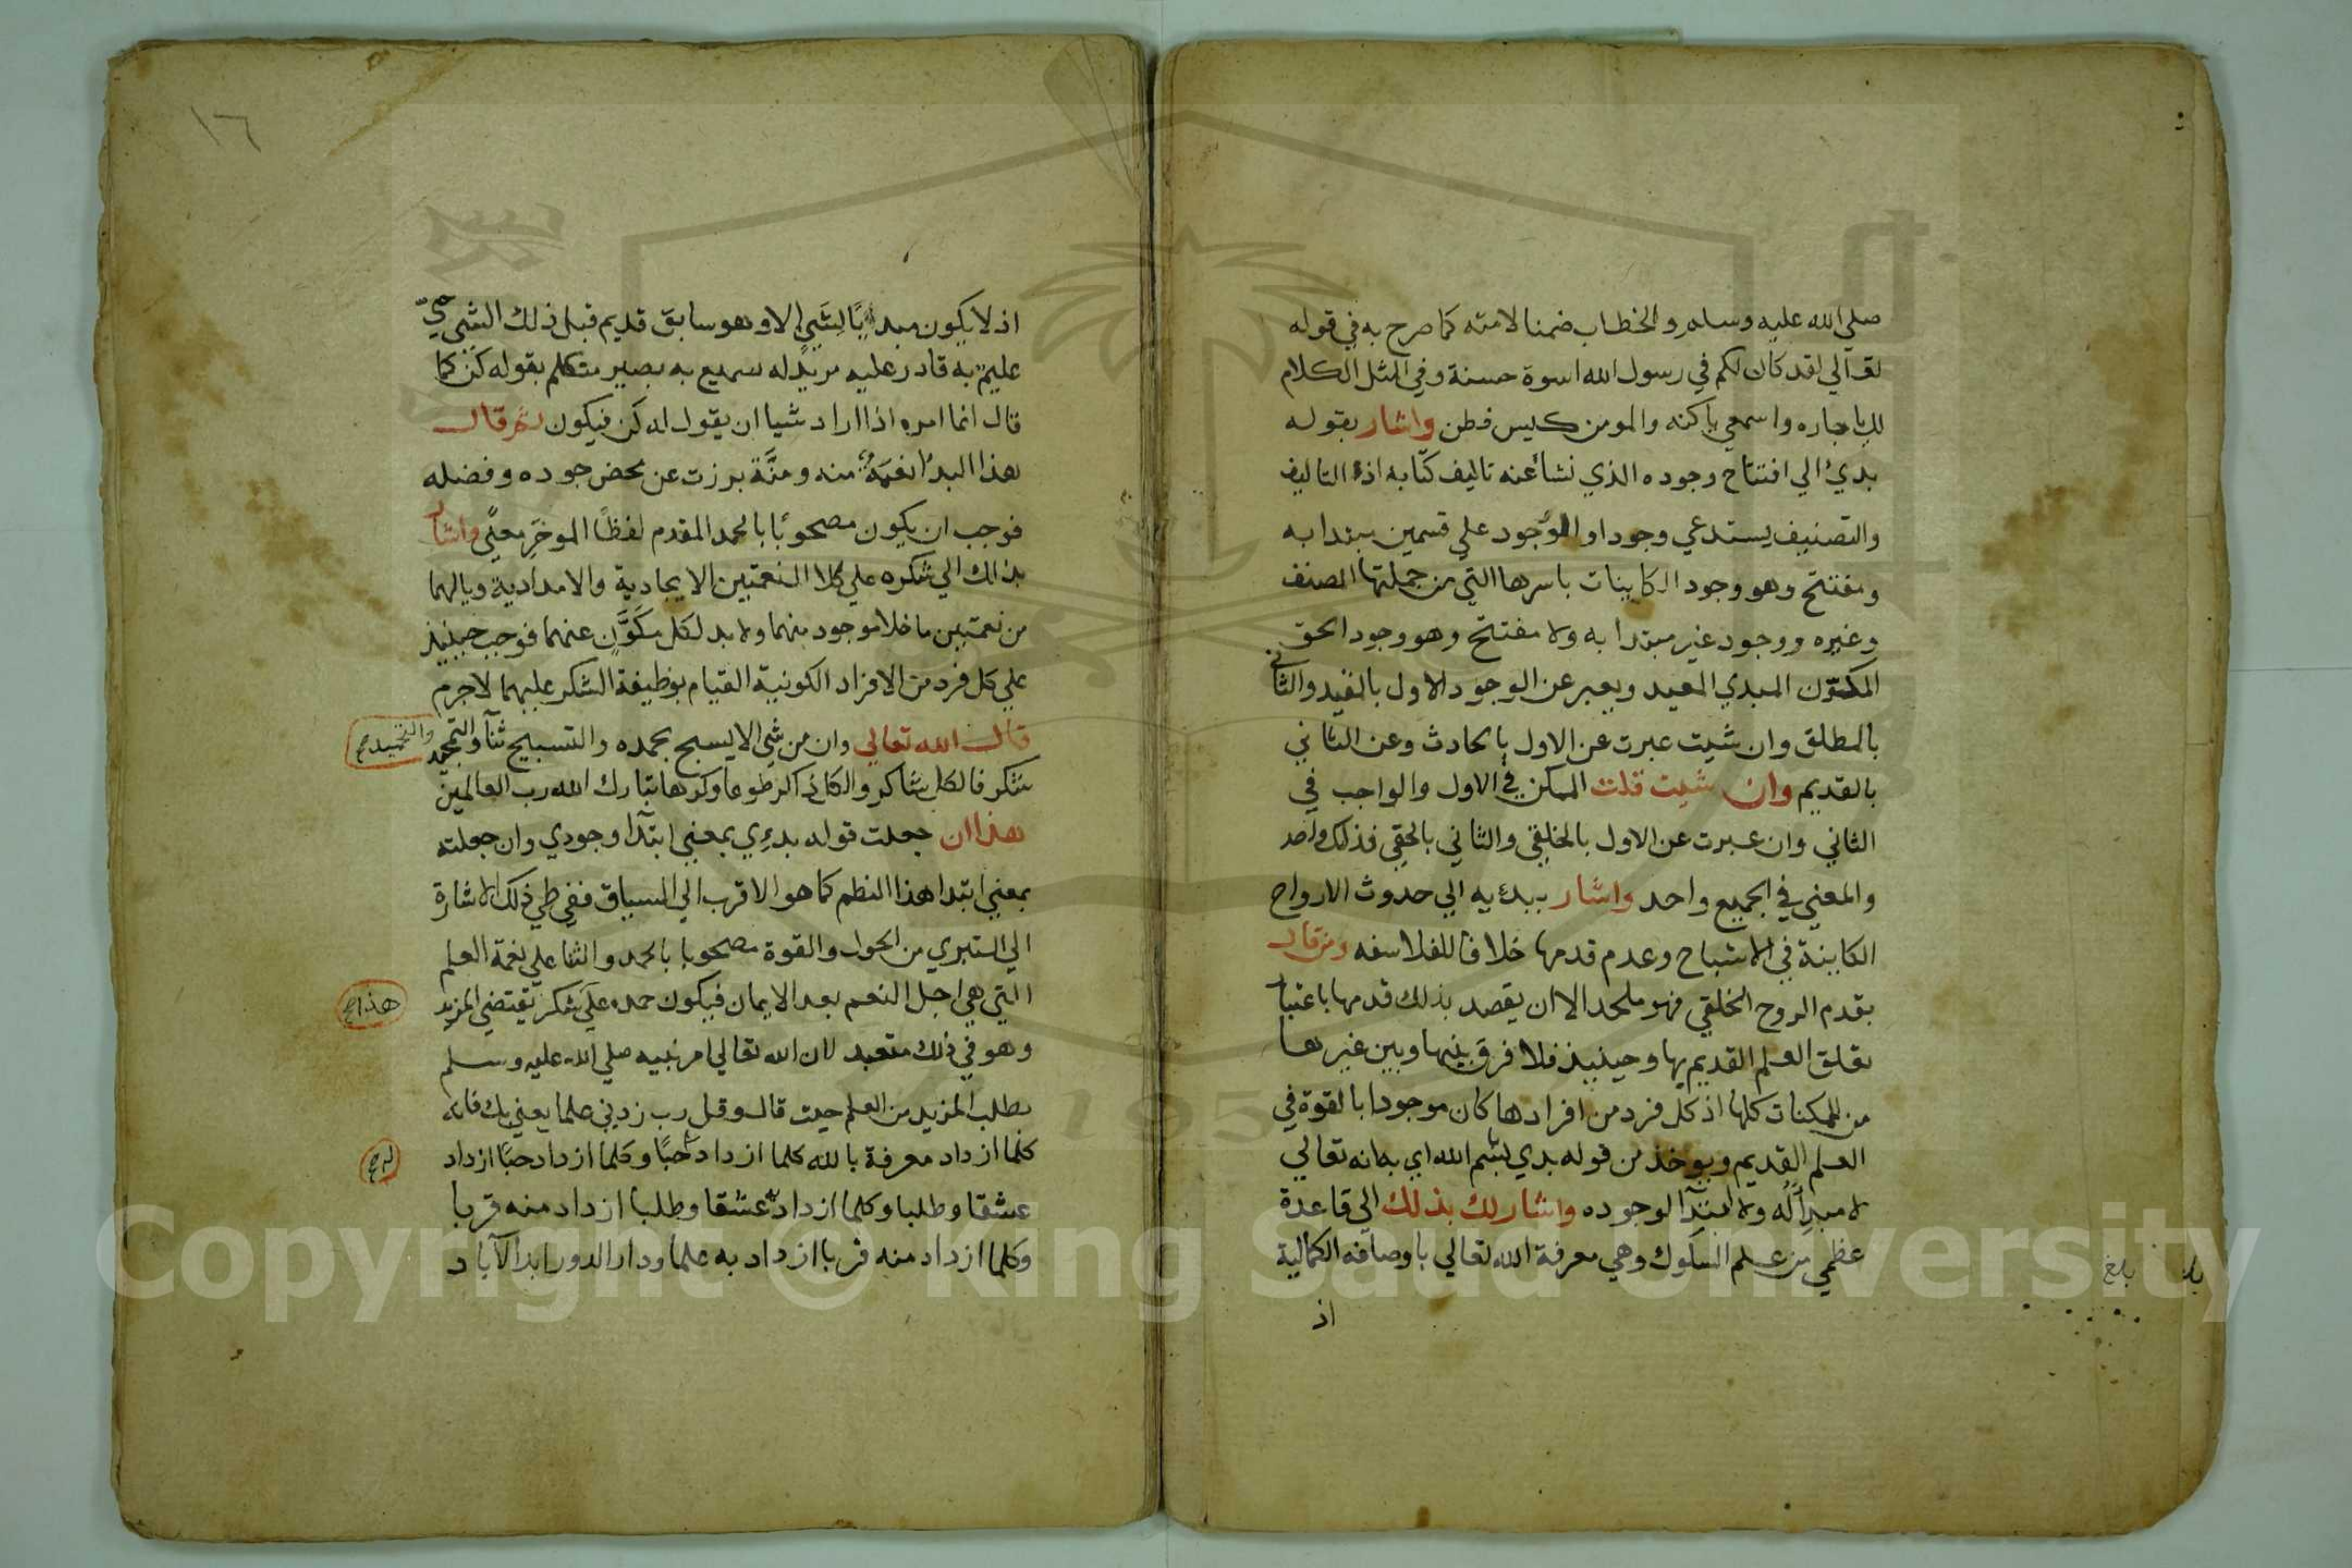 صلي الله عليه وسلم والخطاب ضمنا لامته كما صرح به في قوله
تعالي لقد كان لكم في رسول الله اسوة حسنة وفي المثل الكلام
لك يا جاره واسمعي يا كنه والمومن كيس فطن واشار بقوله
بدئ الي افتتاح وجوده الذي نشأ عنه تاليف كتابه اذ التاليف
والتصنيف يستدعي وجودا والوجود علي قسمين مبتدا به
ومفتتح وهو وجود الكاينات باسرها التي من جملتها المصنف
وغيره ووجود غير مبتدا به ولا مفتتح وهو وجود الحق
المكون المبدي المعيد ويعبر عن الوجود الاول بالمقيد والثاني
بالمطلق وان شيت عبرت عن الاول بالحادث وعن الثاني
بالقديم وان شيت قلت الممكن في الاول والواجب في
الثاني وان عبرت عن الاول بالخلقي والثاني بالحقي فذلك واحد
والمعني في الجميع واحد واشار ببدءيه الي حدوث الارواح
الكاينة في الاشباح وعدم قدمها خلافا للفلاسفه ومن قال
بقدم الروح الخلقي فهو ملحد الا ان يقصد بذلك قدمها باعتبار
تعلق العلم القديم بها وحينيذ فلا فرق بينها وبين غيرها
من الممكنات كلها اذ كل فرد من افرادها كان موجودا بالقوة في
العلم القديم ويوخذ من قوله بدي بسم الله اي به انه تعالي
لا مبدأ له ولا ابتدآ لوجوده واشار لك بذلك الي قاعدة
عظمي من علم السلوك وهي معرفة الله تعالي باوصافه الكمالية
اذ
بلغ
١٦
اذ لا يكون مبدئًا لشيءٍ الا وهو سابق قديم قبل ذلك الشي حيّ
عليم به قادر عليه مريد له سميع به بصير متكلم بقوله كن كما
قال انما امره اذا اراد شيا ان يقول له كن فيكون ثم قال
هذا البدء نعمة منه ومنَّة برزت عن محض جوده وفضله
فوجب ان يكون مصحوبًا بالحمد المقدم لفظًا الموخر معنًي واشار
بذلك الي شكره علي كلا النعمتين الايجادية والامدادية ويا لهما
من نعمتين ما خلا موجود منهما ولا بد لكل مكَوَّن عنهما فوجب حينيذ
علي كل فرد من الافراد الكونية القيام بوظيفة الشكر عليهما لا جرم
قال الله تعالي وان من شي الا يسبح بحمده والتسبيح ثنآ والتمجيد
والتحميد صح
شكر فالكل شاكر والكل ذاكر طوعا وكرها تبارك الله رب العالمين
هذا ان جعلت قوله بدءي بمعني ابتدآ وجودي وان جعلته
بمعني ابتدا هذا النظم كما هو الاقرب الي السياق ففي طي ذلك الاشارة
الي التبري من الحول والقوة مصحوبا بالحمد والثنا علي نعمة العلم
التي هي اجل النعم بعد الايمان فيكون حمده علي شكر يقتضي المزيد
هذا صح
وهو في ذلك متعبد لان الله تعالي امر نبيه صلي الله عليه وسلم
بطلب المزيد من العلم حيث قال وقل رب زدني علما يعني بك فانه
كلما ازداد معرفة بالله كلما ازداد حبًا وكلما ازداد حبًا ازداد
له صح
عشقا وطلبا وكلما ازداد عشقا وطلبا ازداد منه قربا
وكلما ازداد منه قربا ازداد به علما ودار الدور ابد الآباد
Copyright © King Saud University